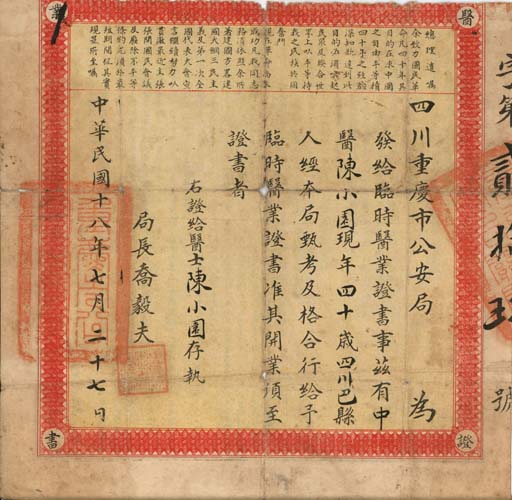 醫業證書
字第貳拾
號
總理遺囑
余致力國民革
命凡四十年其
目的在求中國
之自由平等積
四十年之經驗
深知欲達到此
目的必須喚起
民眾及聯合世
界上以平等待
我之民族共同
奮鬥
現在革命尚未
成功凡我同志
務須依照余所
著建國方略建
國大綱三民主
義及第一次全
國代表大會宣
言繼續努力以
貫徹最近主張
開國民會議
及廢除不平等
條約尤須於最
短期間促其實
現是所至囑
四川重慶市公安局 為
發給臨時醫業證書事茲有中
醫陳小園現年四十歲四川巴縣
人經本局甄考及格合行給予
臨時醫業證書准其開業須至
證書者
右證給醫士陳小園存執
局長喬毅夫
中華民國十八年七月二十七日